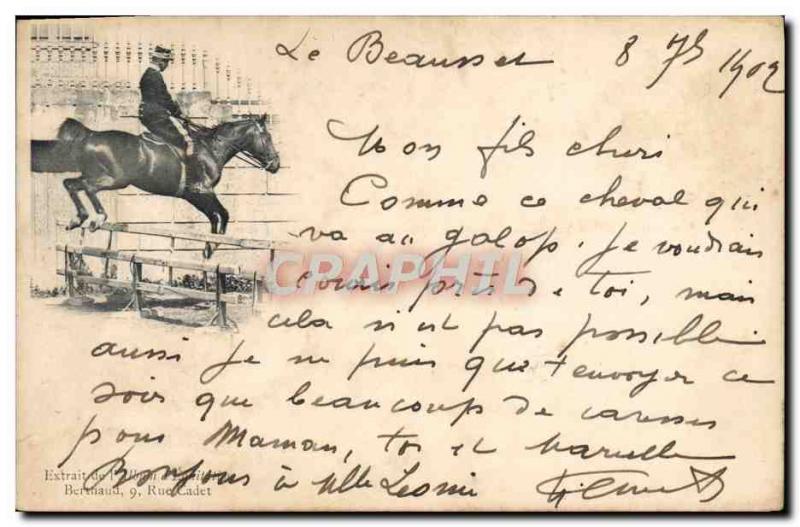 Le Beausset 8 7bre 1902
Mon fils chéri
Comme ce cheval qui
va au galop. Je voudrais
courir près de toi, mais
cela n'est pas possible
aussi je ne puis que t'envoyer ce
soir que beaucoup de caresses
pour Maman, toi et Marcelle
Bonjour à Mlle Leonie
Extrait de l'Album d'
Berthaud, 9, Rue Cadet
CRAPHIL